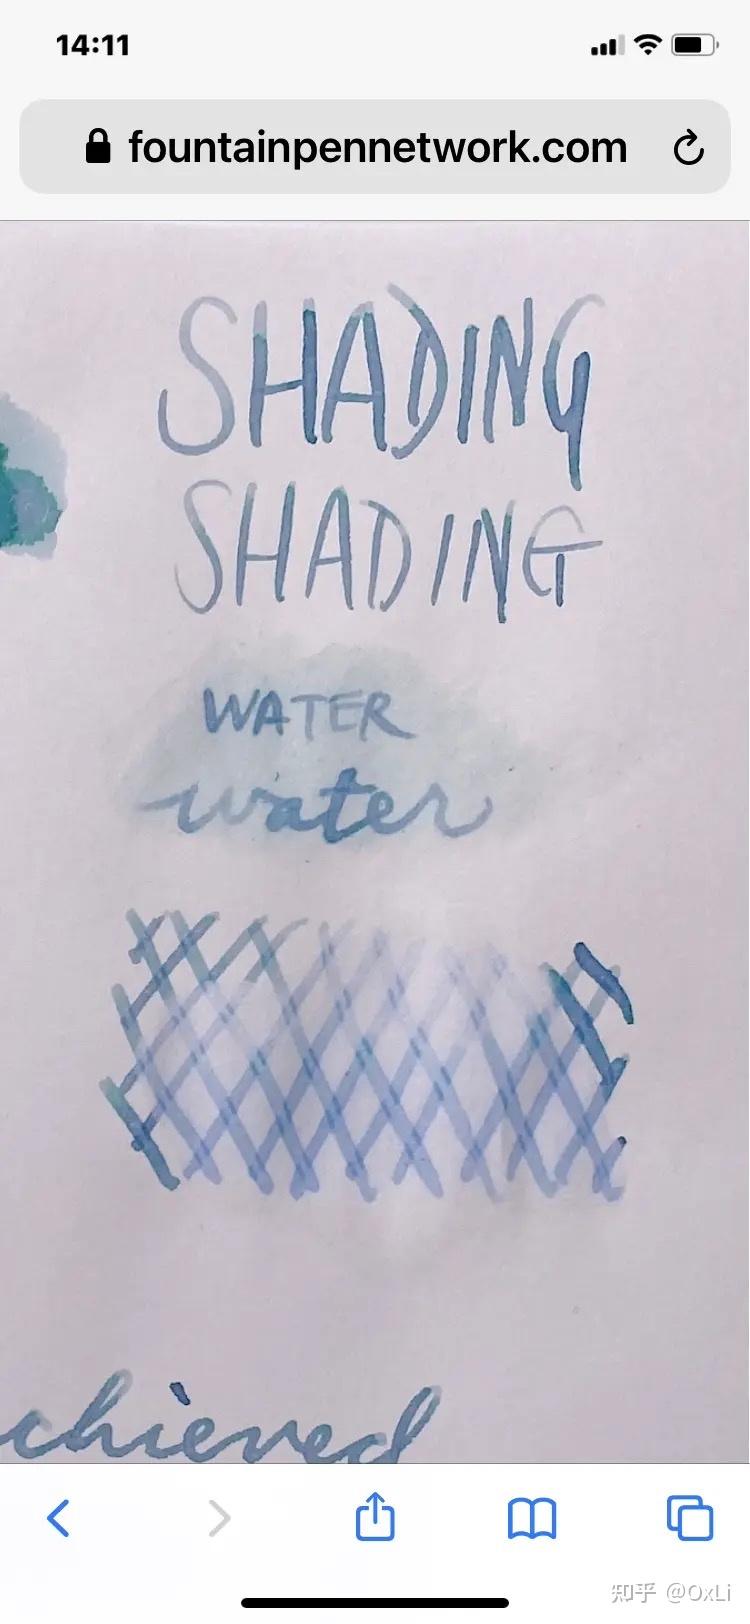 14:11
fountainpennetwork.com
SHADING
SHADING
WATER
water
chieved
知乎 @OxLi